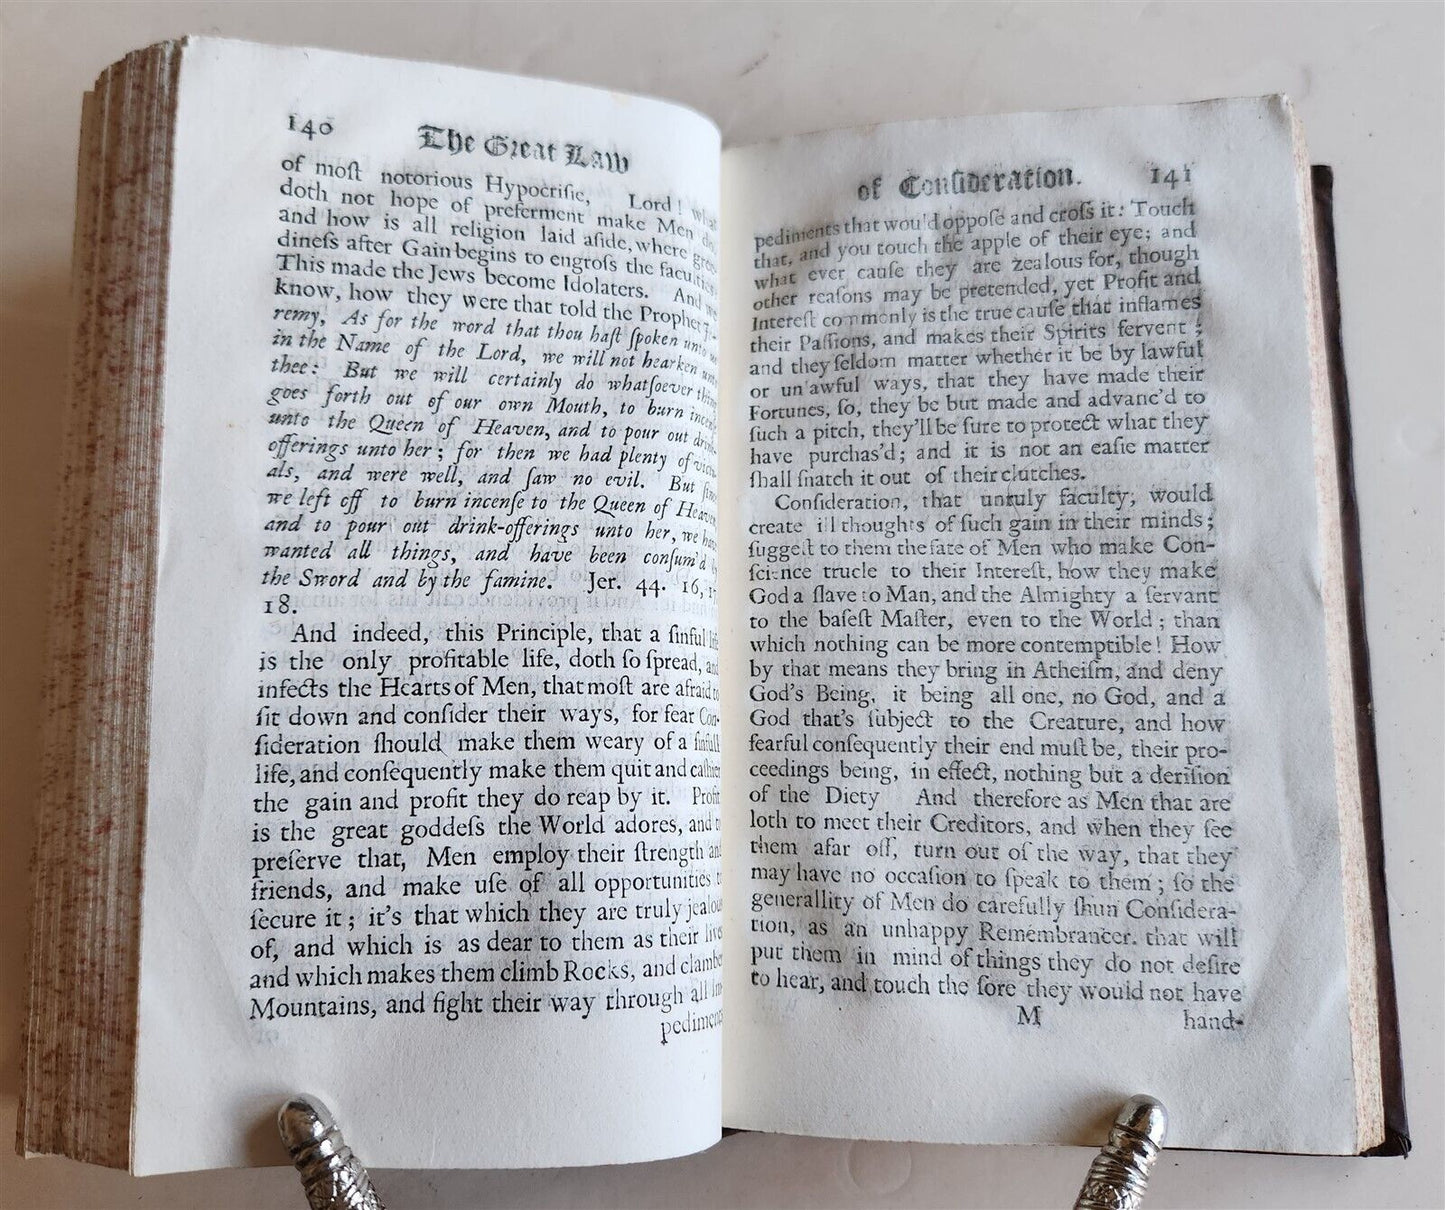 140
The Great Law
of moſt notorious Hypocriſie, Lord! what
doth not hope of preferment make Men do,
and how is all religion laid aſide, where gree-
dineſs after Gain begins to engroſs the faculties
This made the Jews become Idolaters. And we
know, how they were that told the Prophet Je-
remy, As for the word that thou haſt ſpoken unto us
in the Name of the Lord, we will not hearken unto
thee: But we will certainly do whatſoever thing
goes forth out of our own Mouth, to burn incenſe
unto the Queen of Heaven, and to pour out drink-
offerings unto her; for then we had plenty of victu-
als, and were well, and ſaw no evil. But ſince
we left off to burn incenſe to the Queen of Heaven,
and to pour out drink-offerings unto her, we have
wanted all things, and have been conſum'd by
the Sword and by the famine. Jer. 44. 16, 17
18.
And indeed, this Principle, that a ſinful life
is the only profitable life, doth ſo ſpread, and
infects the Hearts of Men, that moſt are afraid to
ſit down and conſider their ways, for fear Con-
ſideration ſhould make them weary of a ſinfull
life, and conſequently make them quit and caſhier
the gain and profit they do reap by it. Profit
is the great goddeſs the World adores, and to
preſerve that, Men employ their ſtrength and
friends, and make uſe of all opportunities to
ſecure it; it's that which they are truly jealous
of, and which is as dear to them as their lives
and which makes them climb Rocks, and clamber
Mountains, and fight their way through all Im-
pediments
of Conſideration.
141
pediments that wou'd oppoſe and croſs it: Touch
that, and you touch the apple of their eye; and
what ever cauſe they are zealous for, though
other reaſons may be pretended, yet Profit and
Intereſt commonly is the true cauſe that inflames
their Paſſions, and makes their Spirits fervent;
and they ſeldom matter whether it be by lawful
or un'awful ways, that they have made their
Fortunes, ſo, they be but made and advanc'd to
ſuch a pitch, they'll be ſure to protect what they
have purchas'd; and it is not an eaſie matter
ſhall ſnatch it out of their clutches.
Conſideration, that untuly faculty, would
create ill thoughts of ſuch gain in their minds;
ſuggeſt to them the fate of Men who make Con-
ſcience trucle to their Intereſt, how they make
God a ſlave to Man, and the Almighty a ſervant
to the baſeſt Maſter, even to the World; than
which nothing can be more contemptible! How
by that means they bring in Atheiſm, and deny
God's Being, it being all one, no God, and a
God that's ſubject to the Creature, and how
fearful conſequently their end muſt be, their pro-
ceedings being, in effect, nothing but a deriſion
of the Diety And therefore as Men that are
loth to meet their Creditors, and when they ſee
them afar off, turn out of the way, that they
may have no occaſion to ſpeak to them; ſo the
generallity of Men do carefully ſhun Conſidera-
tion, as an unhappy Remembrancer. that will
put them in mind of things they do not deſire
to hear, and touch the ſore they would not have
M
hand-